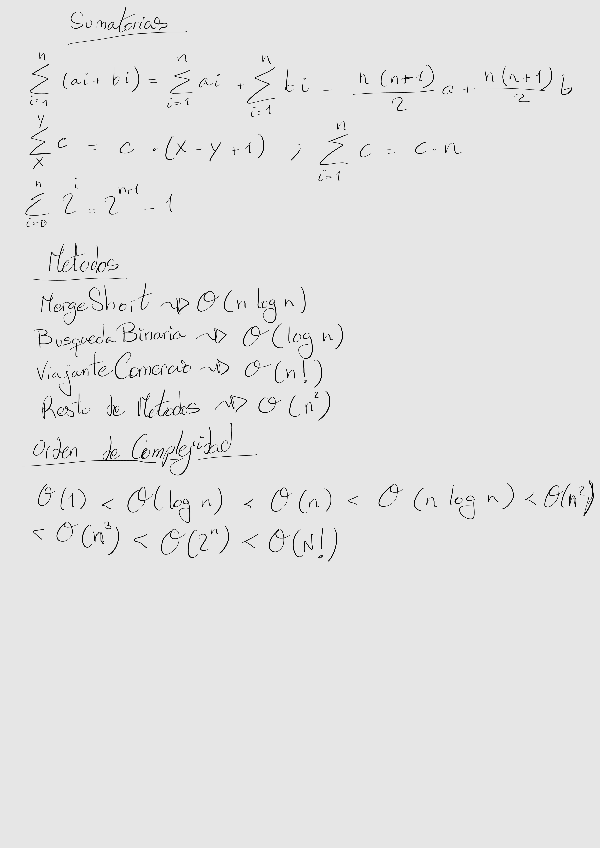 Sumatorias
∑_{i=1}^{n} (ai + bi) = ∑_{i=1}^{n} ai + ∑_{i=1}^{n} bi = n(n+1)/2 a + n(n+1)/2 b
∑_{x}^{y} c = c · (x - y + 1) ; ∑_{i=1}^{n} c = c · n
∑_{i=0}^{n} 2^i = 2^{n+1} - 1
Metodos
MergeShort ⇝ O(n log n)
Busqueda Binaria ⇝ O(log n)
Viajante Comercio ⇝ O(n!)
Resto de Metodos ⇝ O(n²)
Orden de Complejidad
O(1) < O(log n) < O(n) < O(n log n) < O(n²)
< O(n³) < O(2ⁿ) < O(N!)